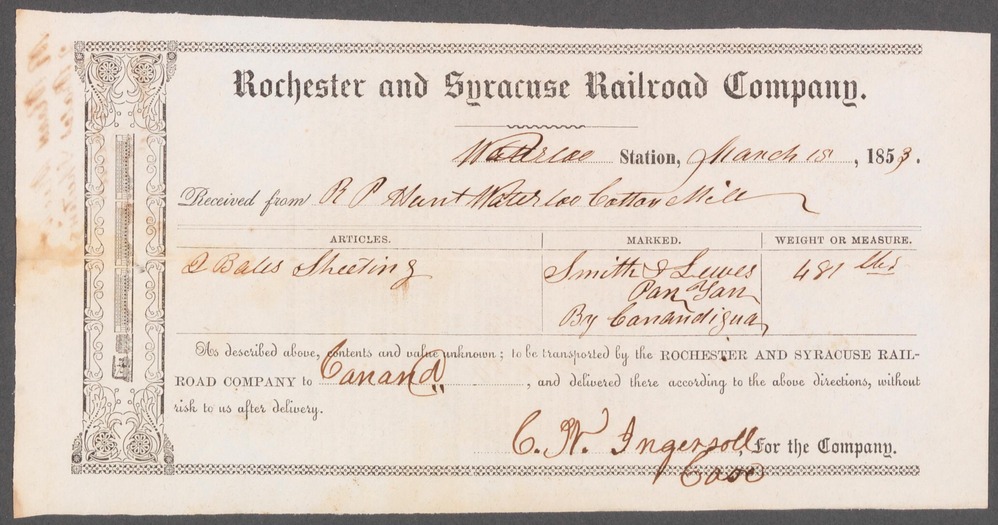 Rochester and Syracuse Railroad Company.
Waterloo Station, March 15, 1853.
Received from R P Hunt Waterloo Cotton Mill
ARTICLES. MARKED. WEIGHT OR MEASURE.
2 Bales Sheeting Smith & Lewes 481 lbs
Pan Yan
By Canandigua
As described above, contents and value unknown; to be transported by the ROCHESTER AND SYRACUSE RAIL-
ROAD COMPANY to Canand, and delivered there according to the above directions, without
risk to us after delivery.
C. W. Ingersoll For the Company.